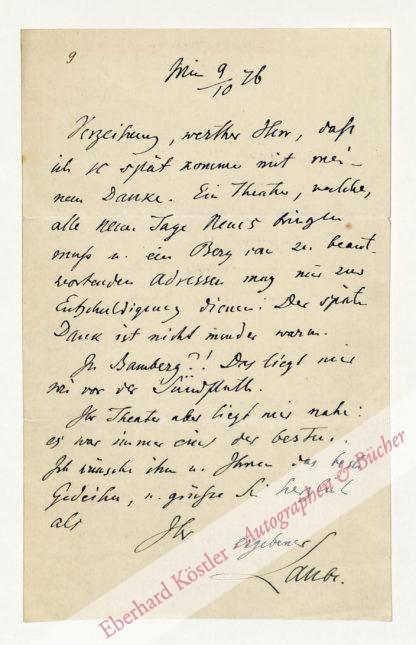 9
Wien 9/10 76
Verzeihung, werther Herr, daß
ich so spät komme mit mei-
nem Danke. Ein Theater, welches
alle neun Tage Neues bringen
muß u. ein Berg von zu beant-
wortenden Adressen mag mir zur
Entschuldigung dienen. Der späte
Dank ist nicht minder warm.
In Bamberg?! Das liegt mir
wie vor der Sündfluth.
Ihr Theater aber liegt mir nahe:
es war immer eines der besten.
Ich wünsche ihm u. Ihnen das beste
Gedeihen, u. grüße Sie herzlich
als
Ihr ergebener
Laube.
Eberhard Köstler Autographen & Bücher